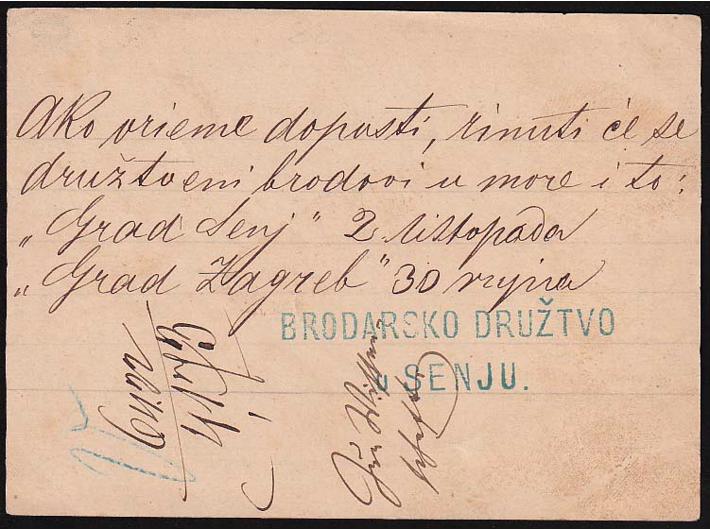 Ako vrieme dopusti, rinuti će se
družtveni brodovi u more i to:
„Grad Senj" 2 listopada
„Grad Zagreb" 30 rujna
BRODARSKO DRUŽTVO
u SENJU.